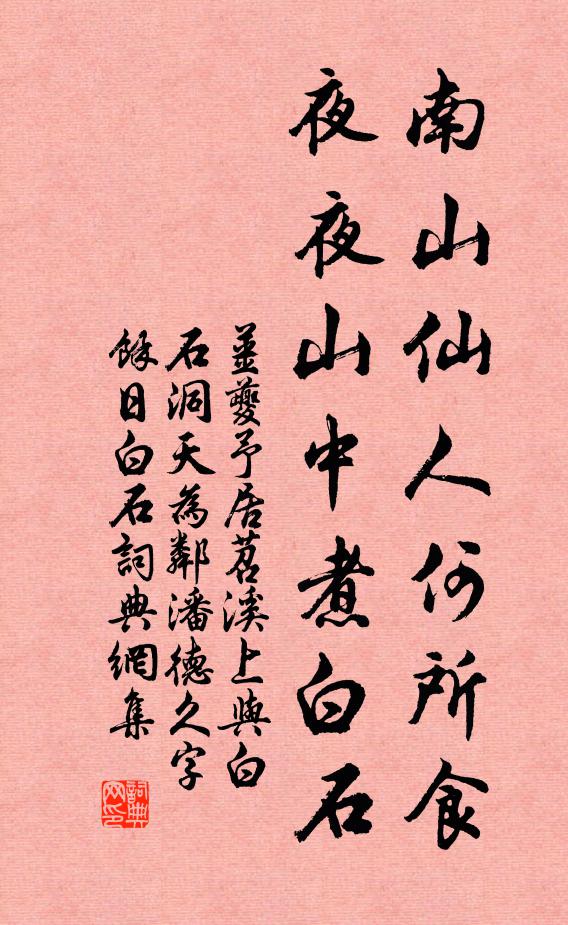 南山仙人何所食
夜夜山中煮白石
姜夔予居苕溪上與白
石洞天為鄰潘德久字
餘曰白石詞典網集
詞典
网印